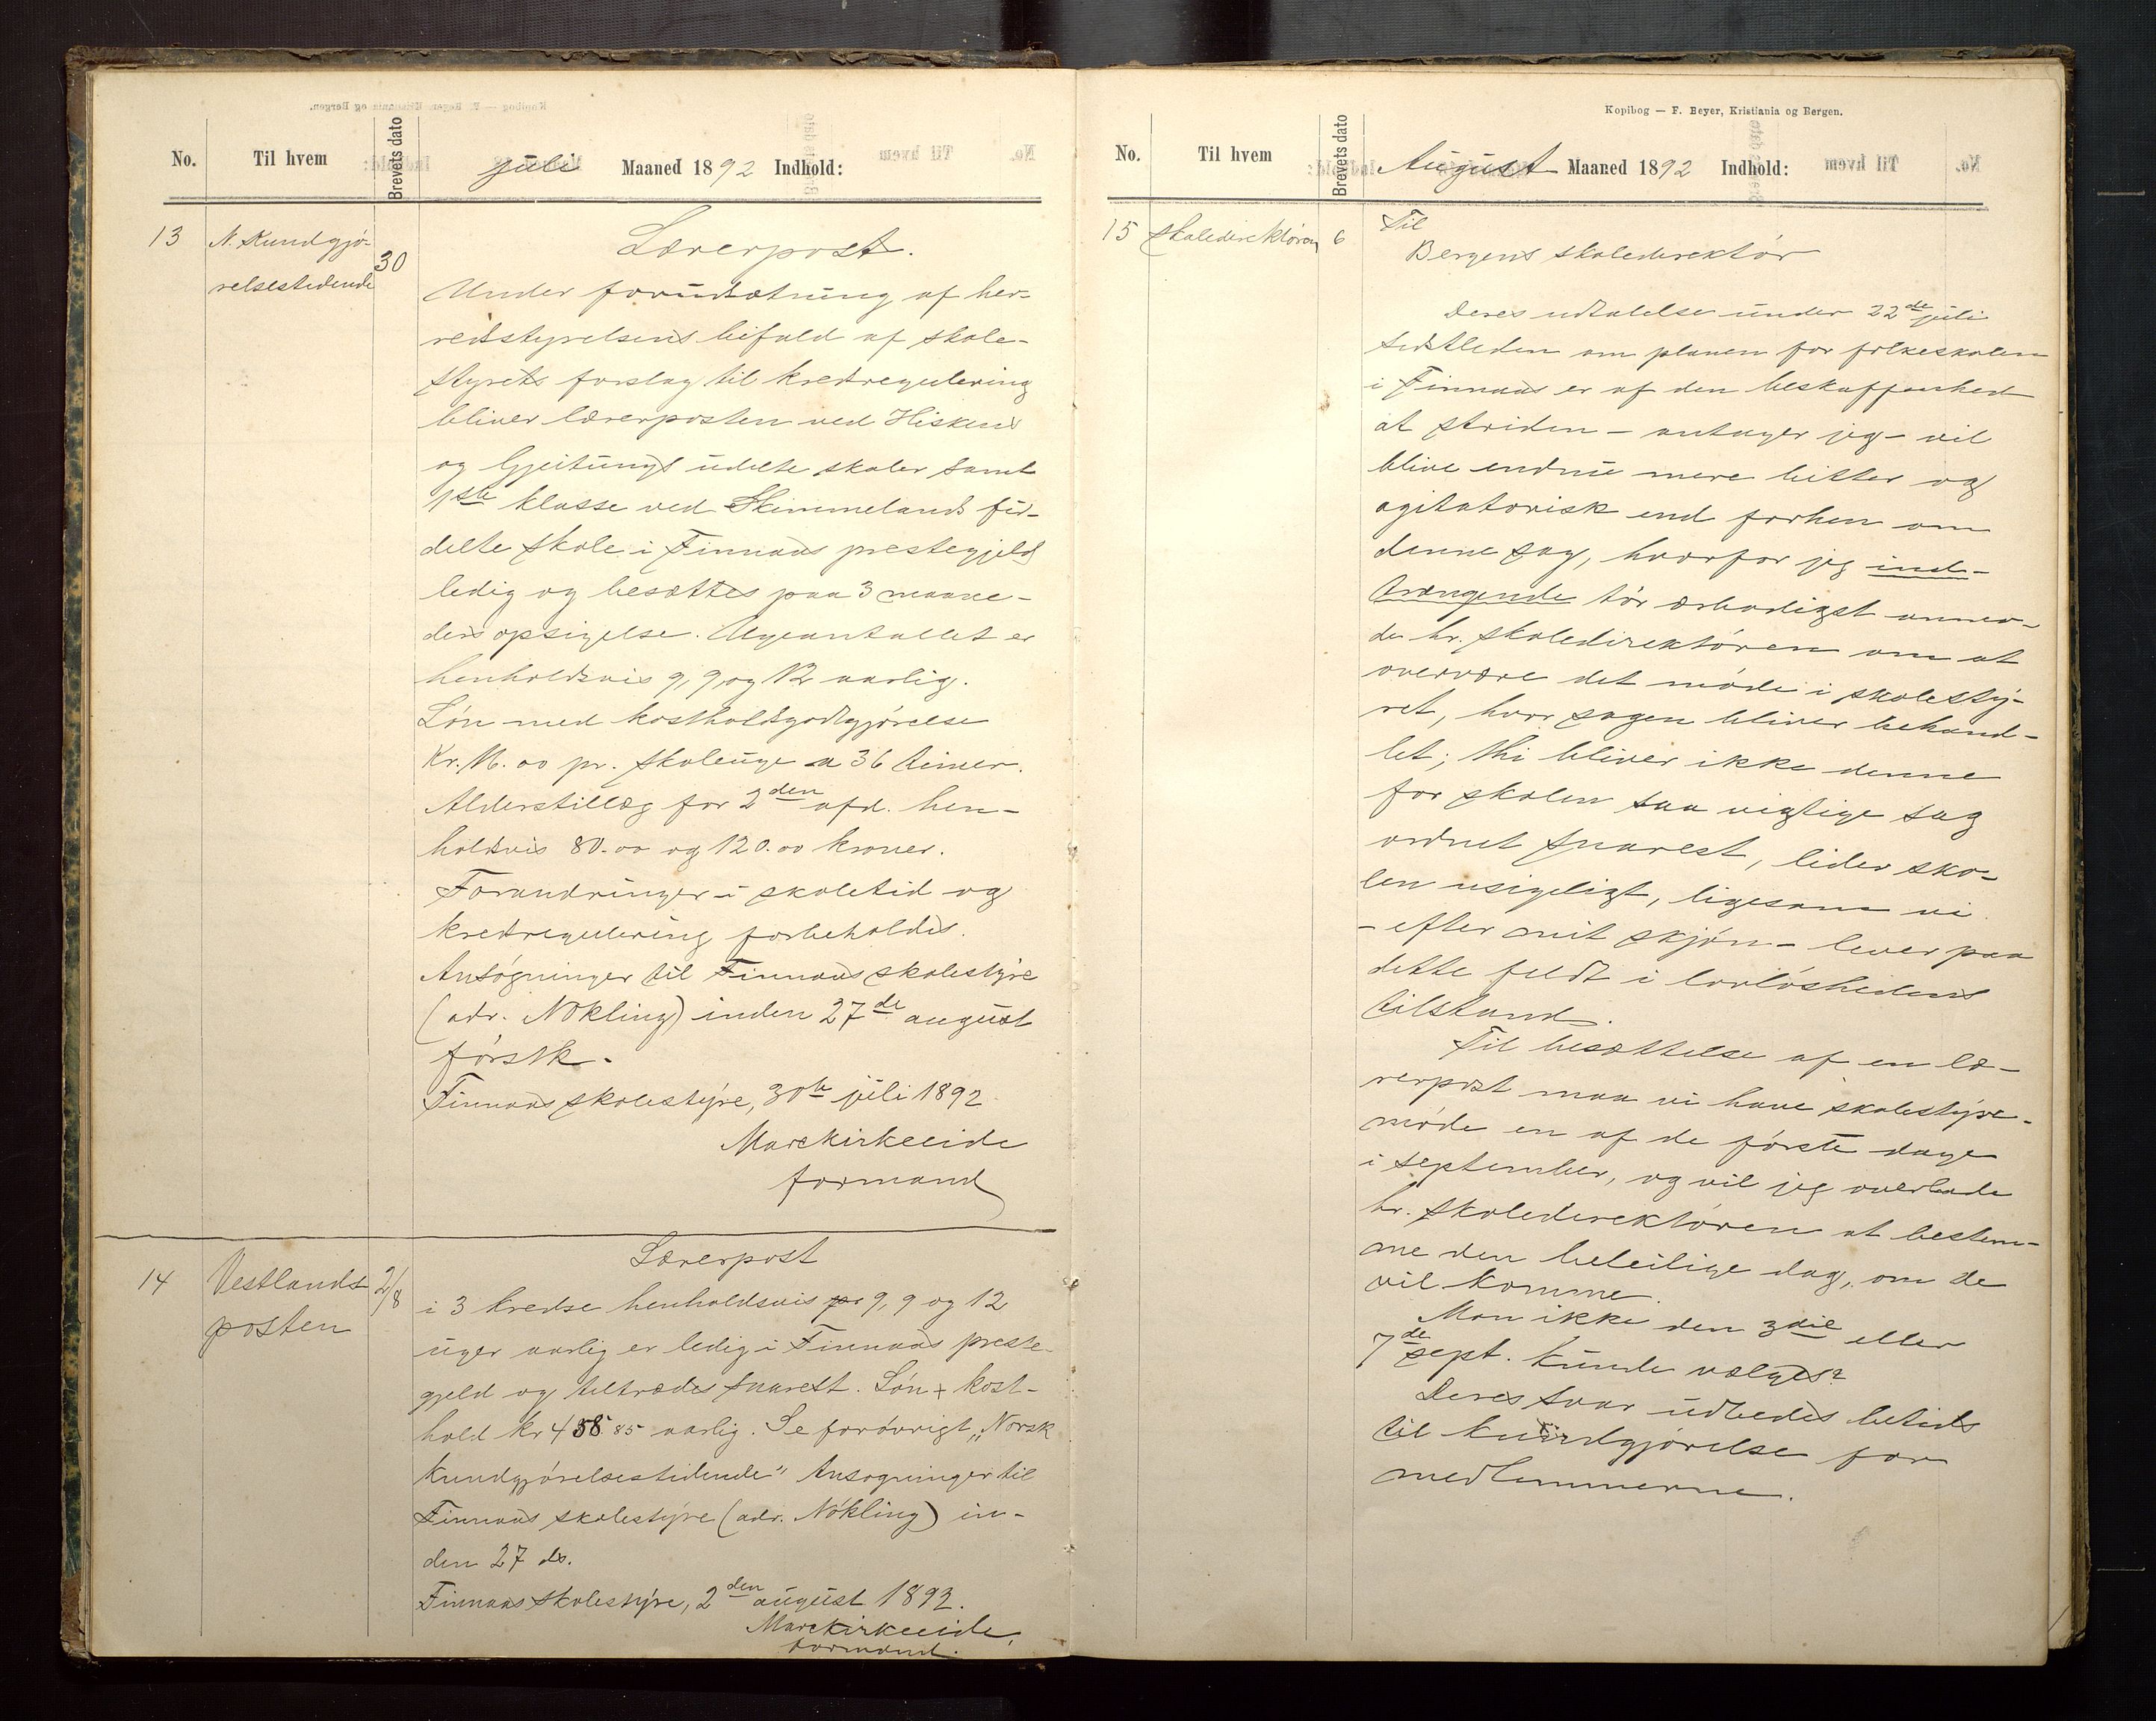 No. Til hvem Brevets dato juli Maaned 1892 Indhold:
13 N. Kundgjø-
relsestidende
30
Lærerpost.
Under forudsætning af her-
redstyrelsens bifald af skole-
styrets forslag til kredsregulering
bliver lærerposten ved Hiskens
og Gjeitungs udelte skoler samt
1ste klasse ved Skimmelands fuld-
delte skole i Finnaas prestegjeld
ledig og besættes paa 3 maane-
ders opsigelse. Ugeantallet er
henholdsvis 9, 9, og 12 aarlig.
Løn med kostholdsgodtgjørelse
Kr. 16.00 pr. skoleuge a 36 timer.
Alderstillæg for 2den afd. hen-
holdsvis 80.00 og 120.00 kroner.
Forandringer i skoletid og
kredsregulering forbeholdes.
Ansøgninger til Finnaas skolestyre
(adr. Nøkling) inden 27de august
førstk.
Finnaas skolestyre, 30te juli 1892
Mar Kirkeeide
formand
14 Vestlands
posten
2/8
Lærerpost
i 3 kredse henholdsvis pr 9, 9 og 12
uger aarlig er ledig i Finnaas preste-
gjeld og tiltrædes snarest. Løn + kost-
hold kr 458.85 aarlig. Se forøvrigt „Norsk
Kundgjørelsestidende" Ansøgninger til
Finnaas skolestyre (adr. Nøkling) in-
den 27 ds.
Finnaas skolestyre, 2den august 1892.
Mar Kirkeeide,
formand.
Kopibog — F. Beyer, Kristiania og Bergen.
No. Til hvem Brevets dato August Maaned 1892 Indhold:
15 Skoledirektøren 6
Til
Bergens skoledirektør
Deres udtalelse under 22de juli
sidstleden om planen for folkeskolen
i Finnaas er af den beskaffenhed
at striden - antager jeg - vil
blive endnu mere bitter og
agitatorisk end forhen om
denne sag, hvorfor jeg ind-
trængende tør ærbødigst anmo-
de hr. skoledirektøren om at
overvære det møde i skolesty-
ret, hvor sagen bliver behand-
let; thi bliver ikke denne
for skolen saa vigtige sag
ordnet snarest, lider sko-
len usigeligt, ligesom vi
- efter mit skjøn - lever paa
dette feldt i lovløshedens
tilstand.
Til besættelse af en læ-
rerpost maa vi have skolestyre-
møde en af de første dage
i september, og vil jeg overlade
hr. skoledirektøren at bestem-
me den beleilige dag, om de
vil komme.
Mon ikke den 3die eller
7de sept. kunde vælges?
Deres svar udbedes betids
til kundgjørelse for
medlemmerne.